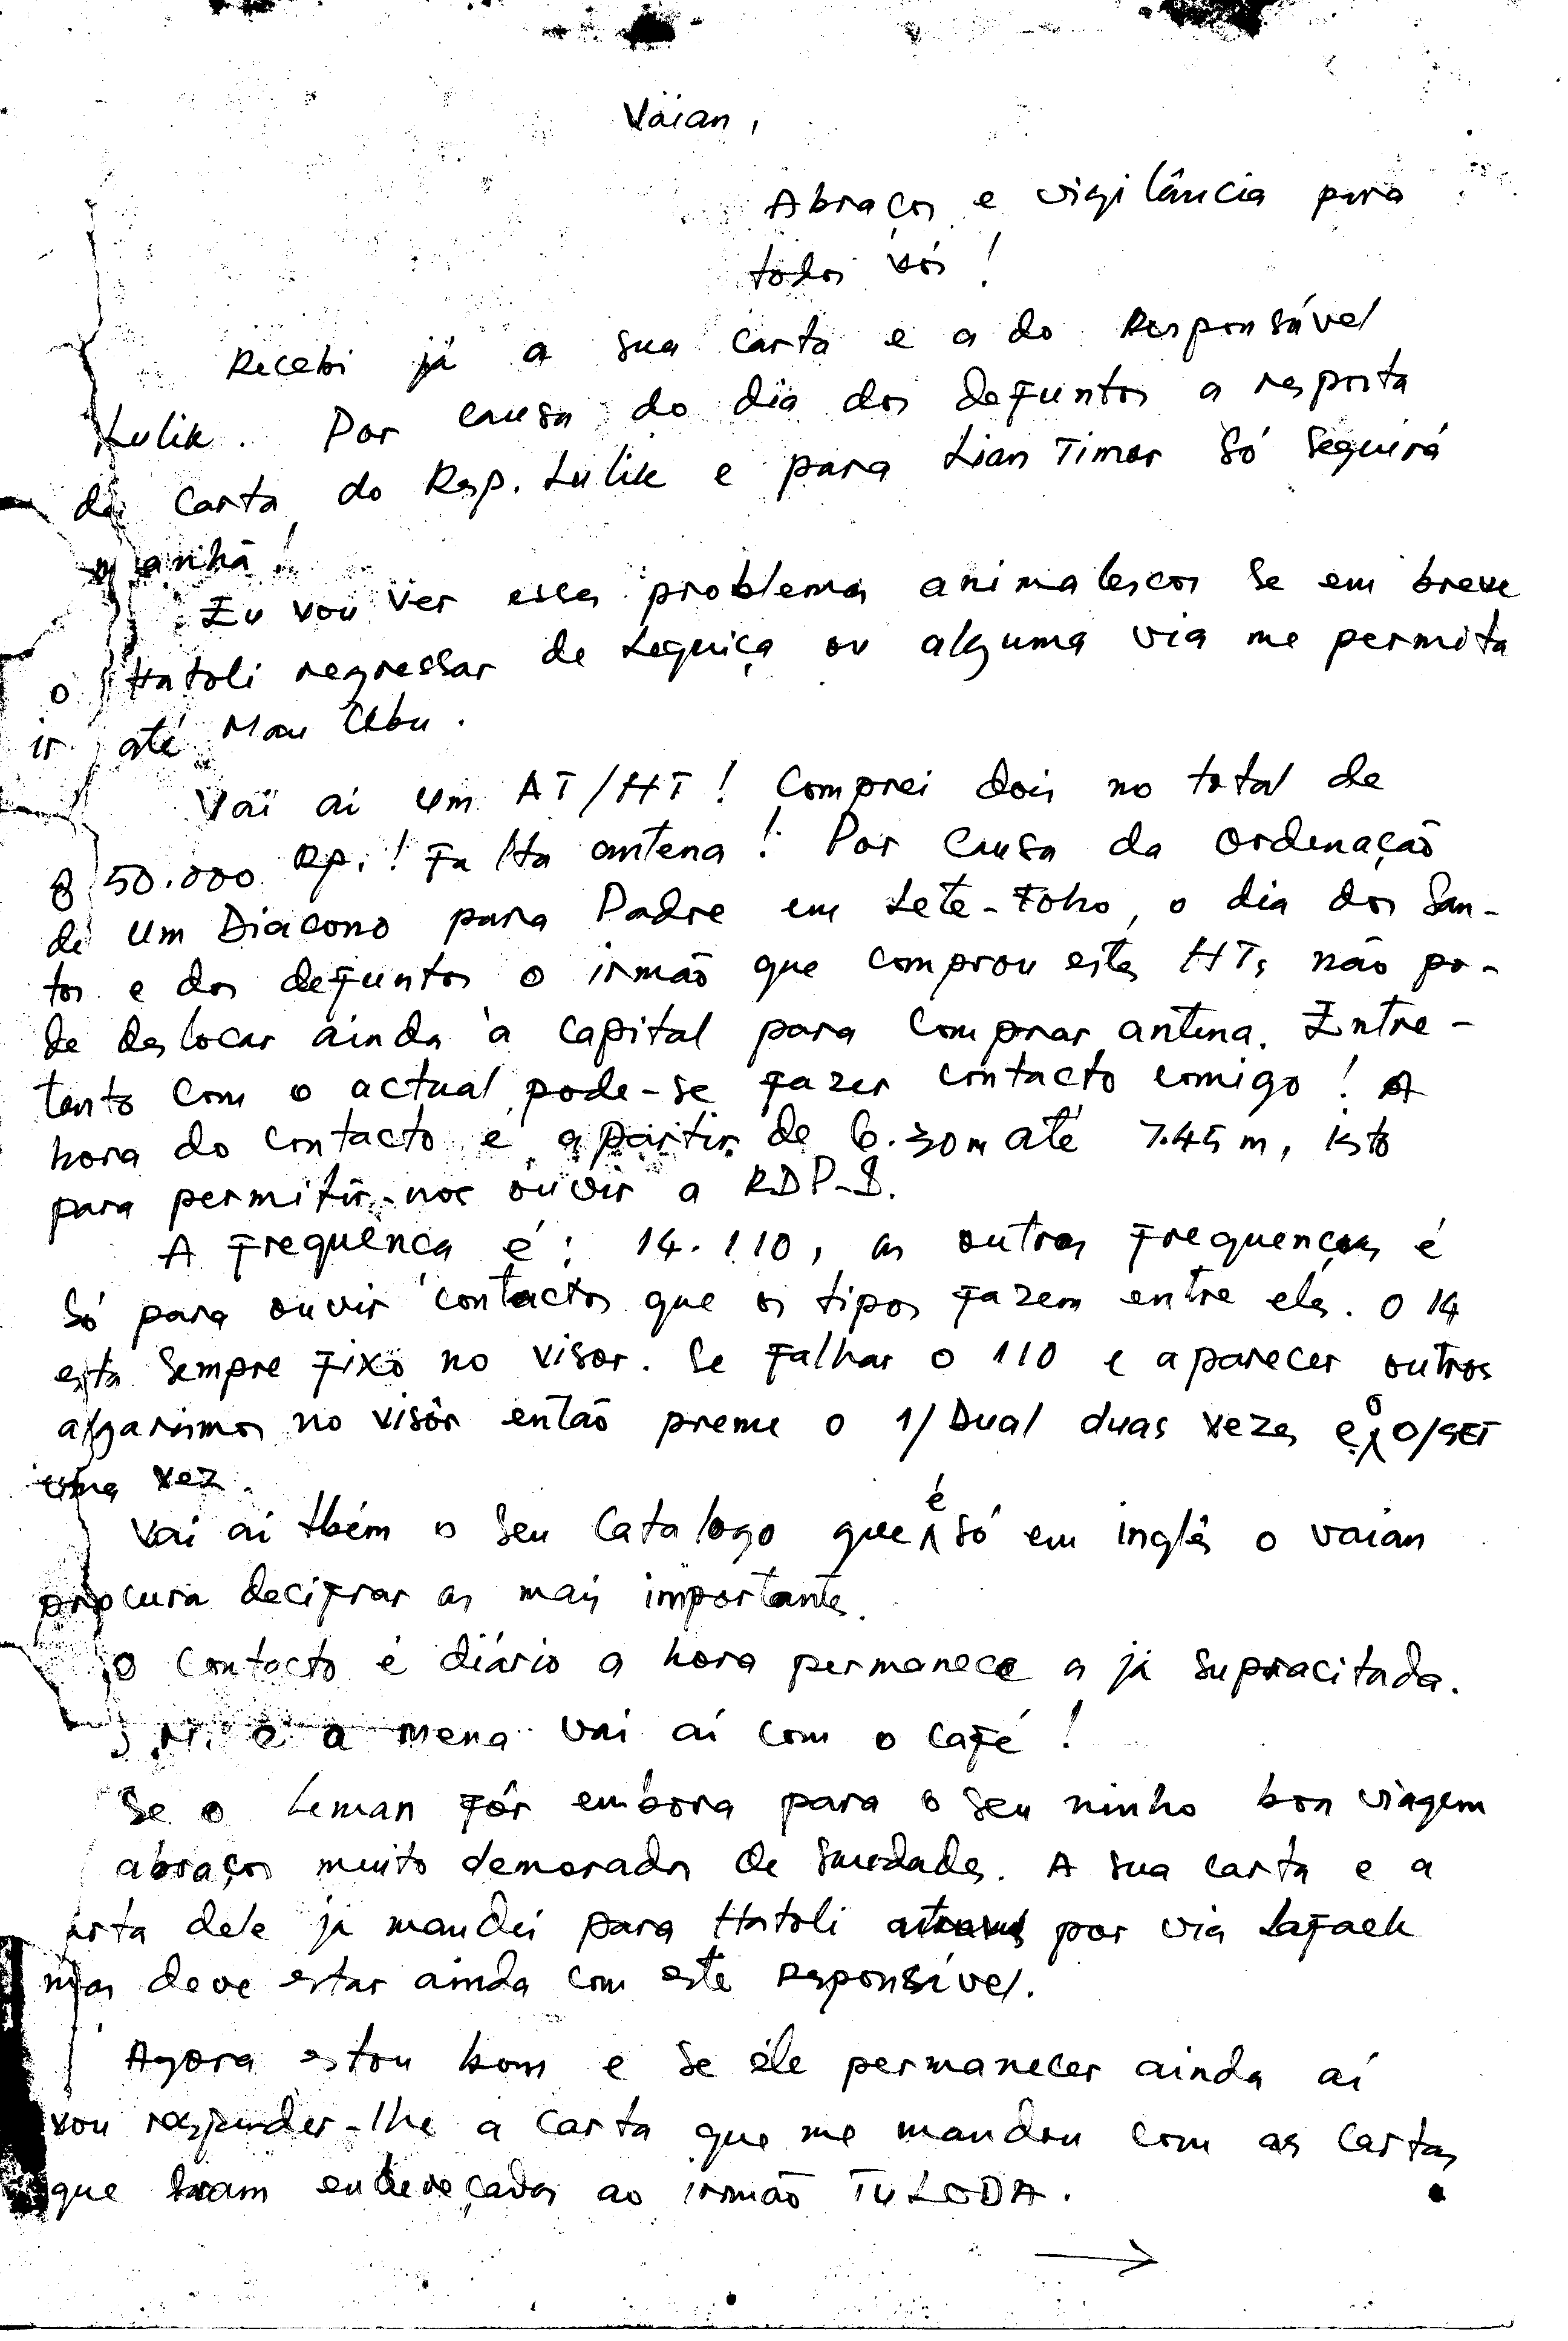 Vaian,
Abraços e vigilância para
todos vós!
Recebi já a sua carta e a do Responsável
Lulik. Por causa do dia dos defuntos a resposta
da carta do Resp. Lulik e para Lian Timor só seguirá
manhã!
Eu vou ver esses problemas animalescos se em breve
o Hatoli regressar de Lequiça ou alguma via me permita
ir até Mau Cebu.
Vai aí um AT/HT! Comprei dois no total de
850.000 Rp.! Falta antena! Por causa da ordenação
de um Diacono para Padre em Lete-Foho, o dia dos San-
tos e dos defuntos o irmão que comprou estes HTs não po-
de deslocar ainda à capital para comprar antena. Entre-
tanto com o actual pode-se fazer contacto comigo! A
hora do contacto é apartir de 6.30m até 7.45m, isto
para permitir-nos ouvir a RDP-I.
A frequença é: 14.110, as outras frequenças é
só para ouvir contactos que os tipos fazem entre eles. O 14
esta sempre fixo no visor. Se falhar o 110 e aparecer outros
algarismos no visôr então preme o 1/Dual duas vezes e o 0/SET
uma vez.
Vai aí tbém o seu Catalogo que é só em inglês o vaian
procura decifrar as mais importantes.
O contacto é diário a hora permanece a já supracitada.
e a mena vai aí com o café!
Se o Leman fôr embora para o seu ninho boa viagem
abraços muito demorados de saudades. A sua carta e a
carta dele já mandei para Hatoli por via Lafaek
mas deve estar ainda com este responsável.
Agora estou bom e se êle permanecer ainda aí
vou responder-lhe a carta que me mandou com as cartas
que foram endereçadas ao irmão TULODA.